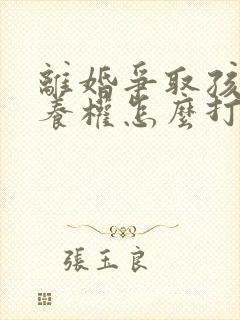 離婚爭取孩
養權怎麼打
張玉良